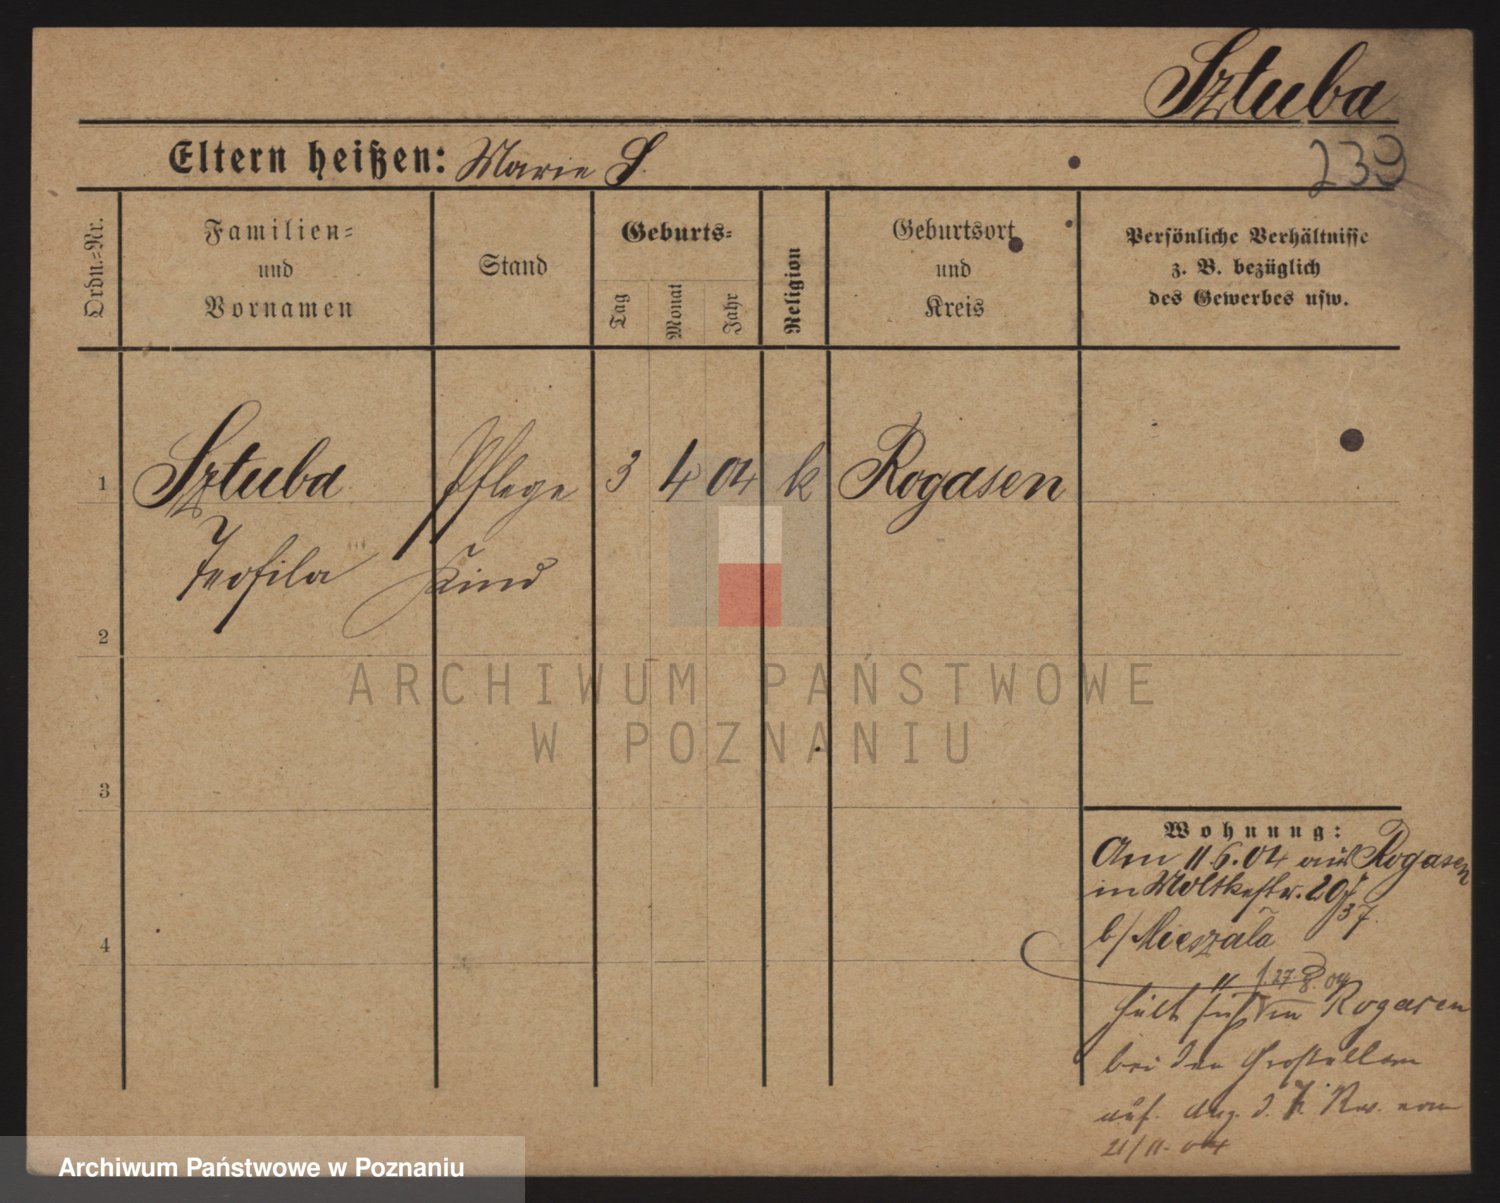 Sztuba
239
Eltern heißen: Marie S.
Ordn.-Nr.
Familien- und Vornamen
Stand
Geburts-
Tag
Monat
Jahr
Religion
Geburtsort und Kreis
Persönliche Verhältnisse
z. B. bezüglich
des Gewerbes usw.
1 Sztuba Pflege 3 4 04 k Rogasen
Teofila Kind
2
3
4
Wohnung:
Am 11.6.04 aus Rogasen
in Moltkestr. 20
37.
b/ Mieszala
27.8.04
hält sich in Rogasen
bei den Großeltern
auf. d. Rev. vom
21/11. 04
ARCHIWUM PAŃSTWOWE
W POZNANIU
Archiwum Państwowe w Poznaniu